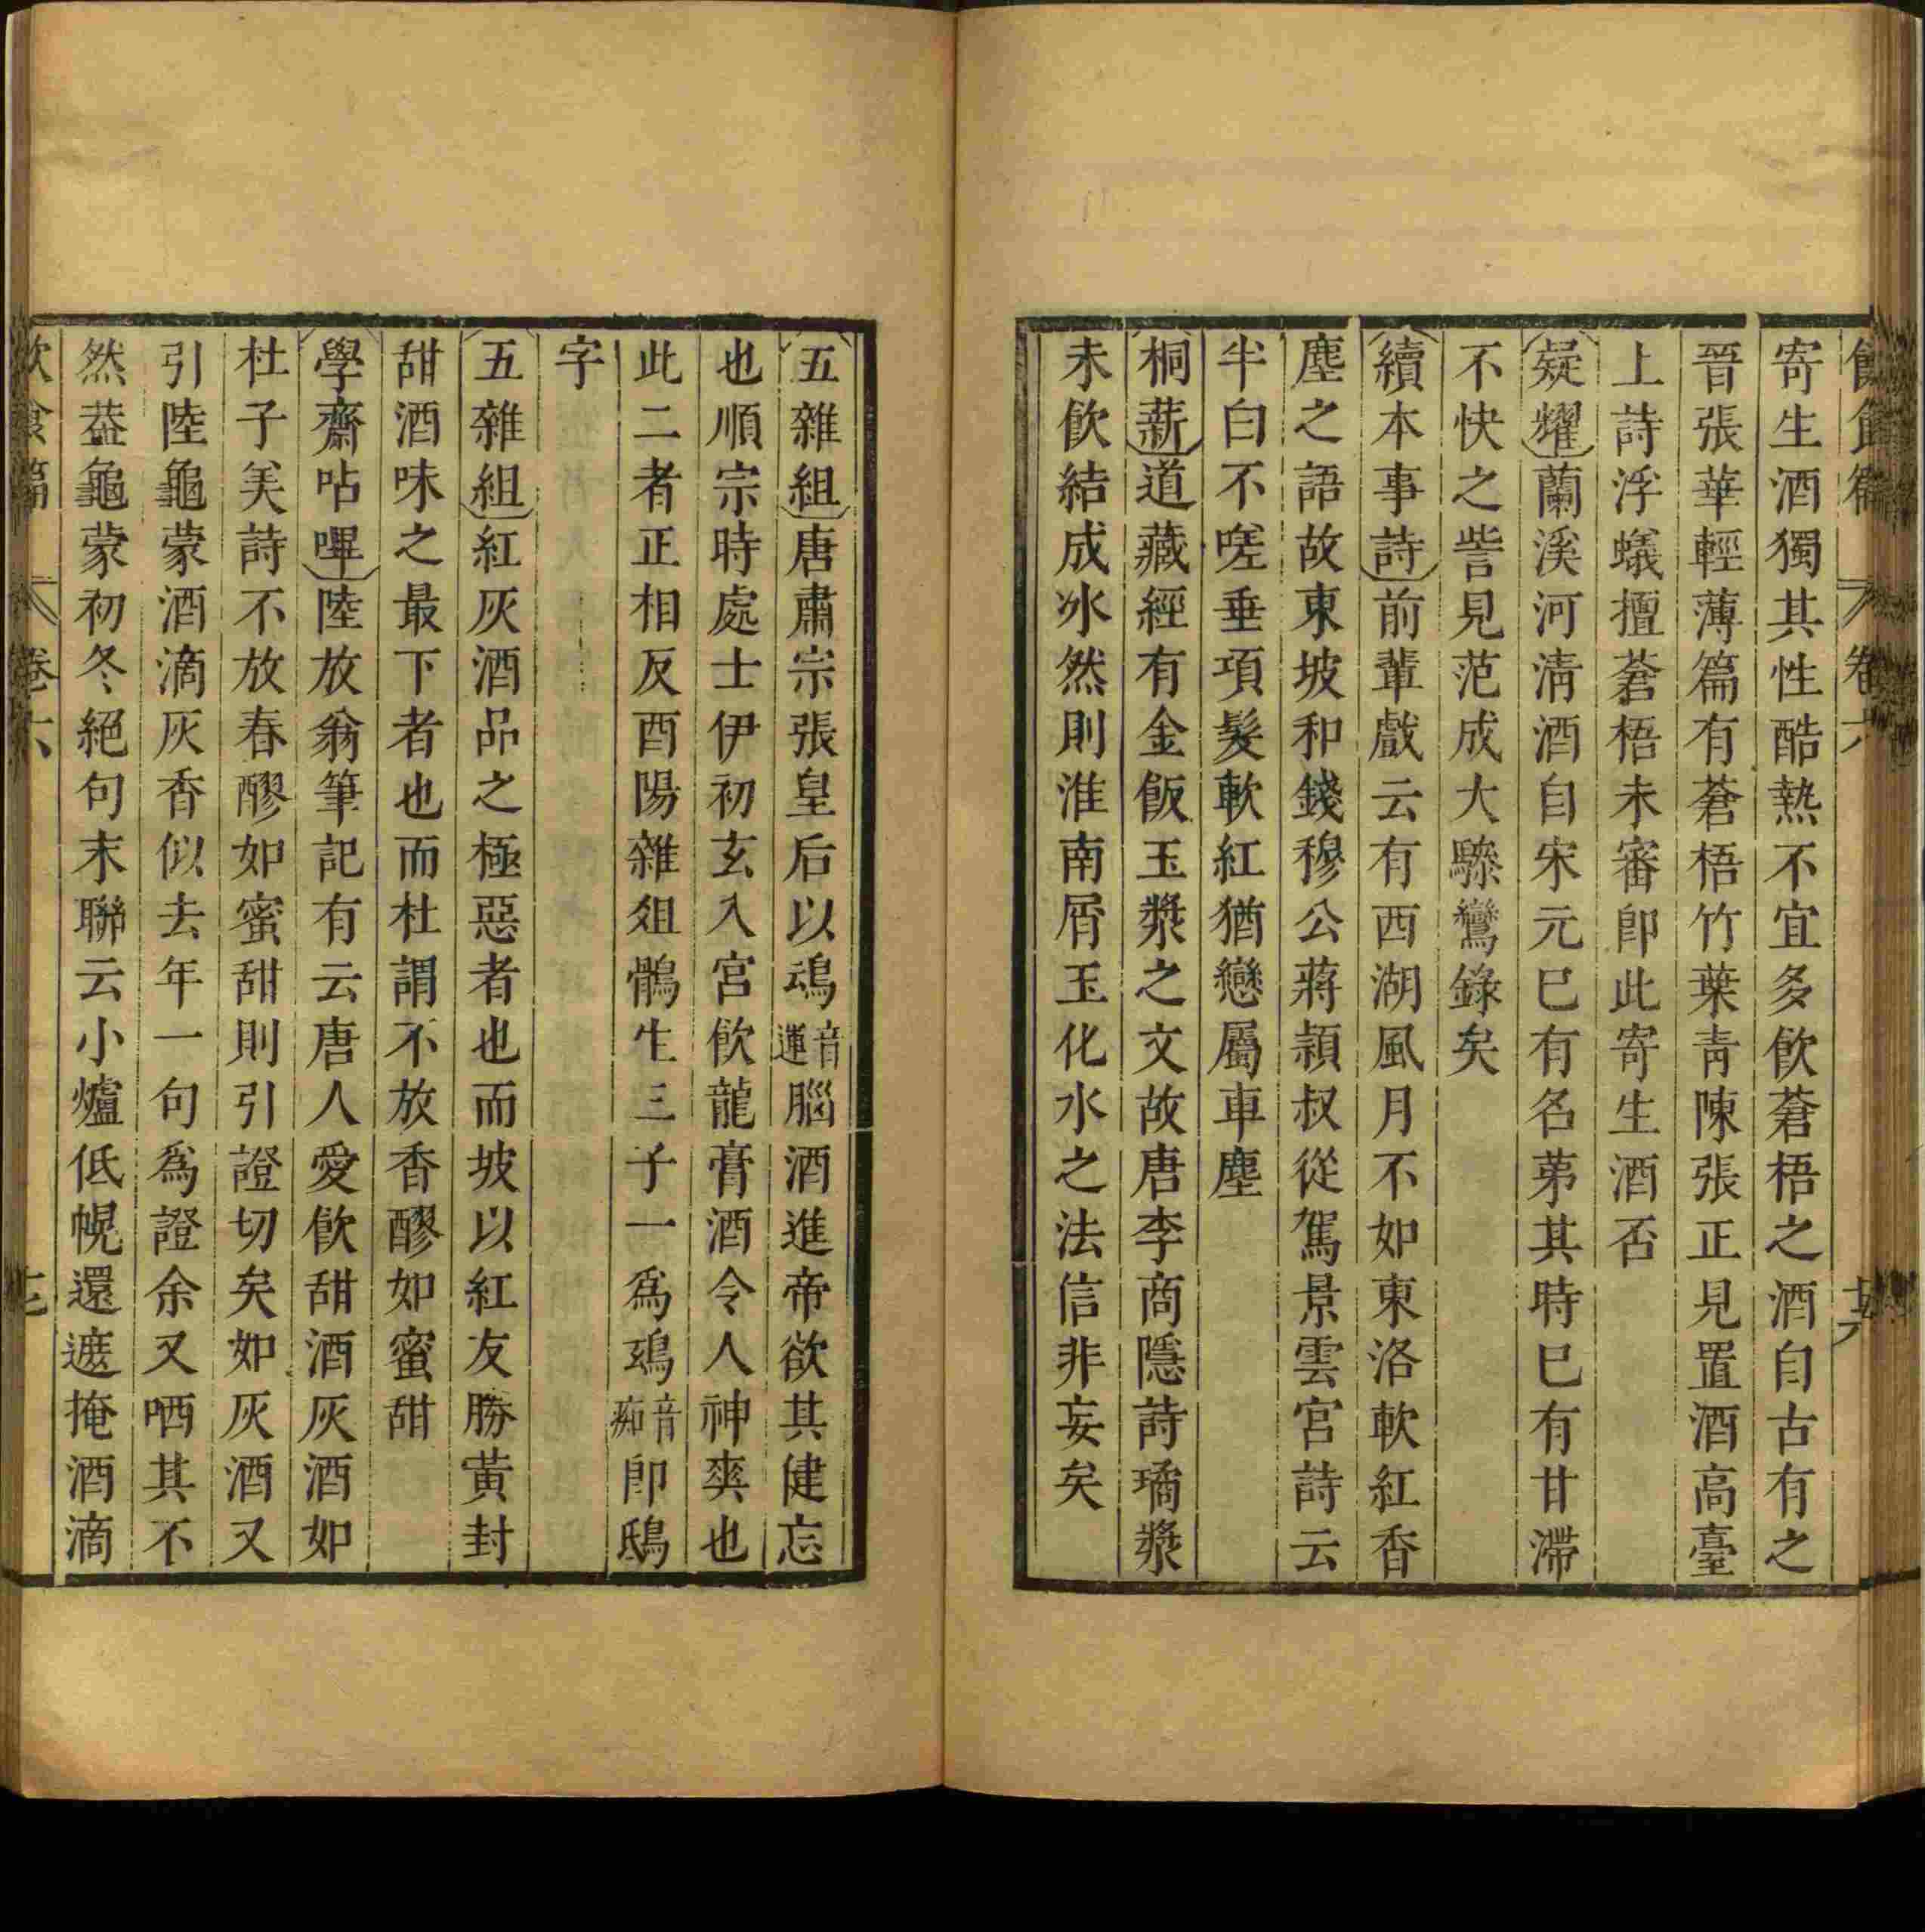 飲食篇 卷六 十六
寄生酒獨其性酷熱不宜多飲蒼梧之酒自古有之
晉張華輕薄篇有蒼梧竹葉青陳張正見置酒高臺
上詩浮蟻擅蒼梧未審卽此寄生酒否
疑耀蘭溪河清酒自宋元已有名苐其時已有甘滯
不快之訾見范成大驂鸞錄矣
續本事詩前輩戲云有西湖風月不如東洛軟紅香
塵之語故東坡和錢穆公蔣穎叔從駕景雲宮詩云
半白不嗟垂項髮軟紅猶戀屬車塵
桐薪道藏經有金飯玉漿之文故唐李商隱詩璚漿
未飲結成冰然則淮南屑玉化水之法信非妄矣
五雜組唐肅宗張皇后以鴆音運腦酒進帝欲其健忘
也順宗時處士伊初玄入宮飲龍膏酒令人神爽也
此二者正相反酉陽雜俎鶻生三子一爲鴆音痴卽鴟
字
五雜組紅灰酒品之極惡者也而坡以紅友勝黃封
甜酒味之最下者也而杜謂不放香醪如蜜甜
學齋呫嗶陸放翁筆記有云唐人愛飲甜酒灰酒如
杜子美詩不放春醪如蜜甜則引證切矣如灰酒又
引陸龜蒙酒滴灰香似去年一句爲證余又哂其不
然葢龜蒙初冬絕句末聯云小爐低幌還遮掩酒滴
飲食篇 卷六 十七